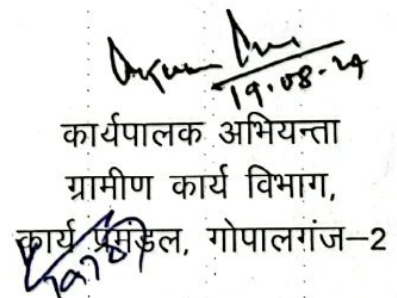 19.08.24
कार्यपालक अभियन्ता
ग्रामीण कार्य विभाग,
कार्य प्रमंडल, गोपालगंज-2